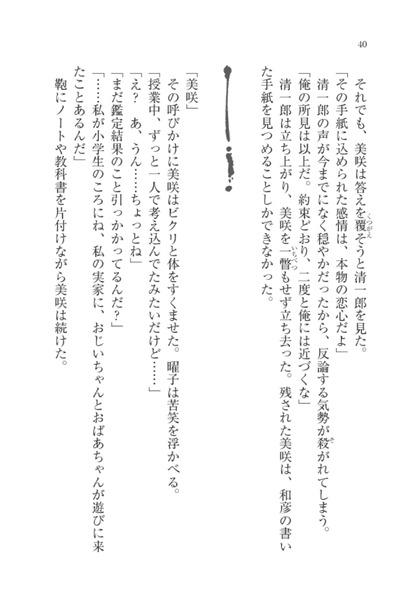 40
それでも、美咲は答えを覆そうと清一郎を見た。
「その手紙に込められた感情は、本物の恋心だよ」
清一郎の声が今までになく穏やかだったから、反論する気勢が殺がれてしまう。
「俺の所見は以上だ。約束どおり、二度と俺には近づくな」
清一郎は立ち上がり、美咲を一瞥もせず立ち去った。残された美咲は、和彦の書い
た手紙を見つめることしかできなかった。
「美咲」
その呼びかけに美咲はビクリと体をすくませた。曜子は苦笑を浮かべる。
「授業中、ずっと一人で考え込んでたみたいだけど……」
「え？　あ、うん……ちょっとね」
「まだ鑑定結果のこと引っかかってるんだ？」
「……私が小学生のころにね、私の実家に、おじいちゃんとおばあちゃんが遊びに来
たことあるんだ」
鞄にノートや教科書を片付けながら美咲は続けた。